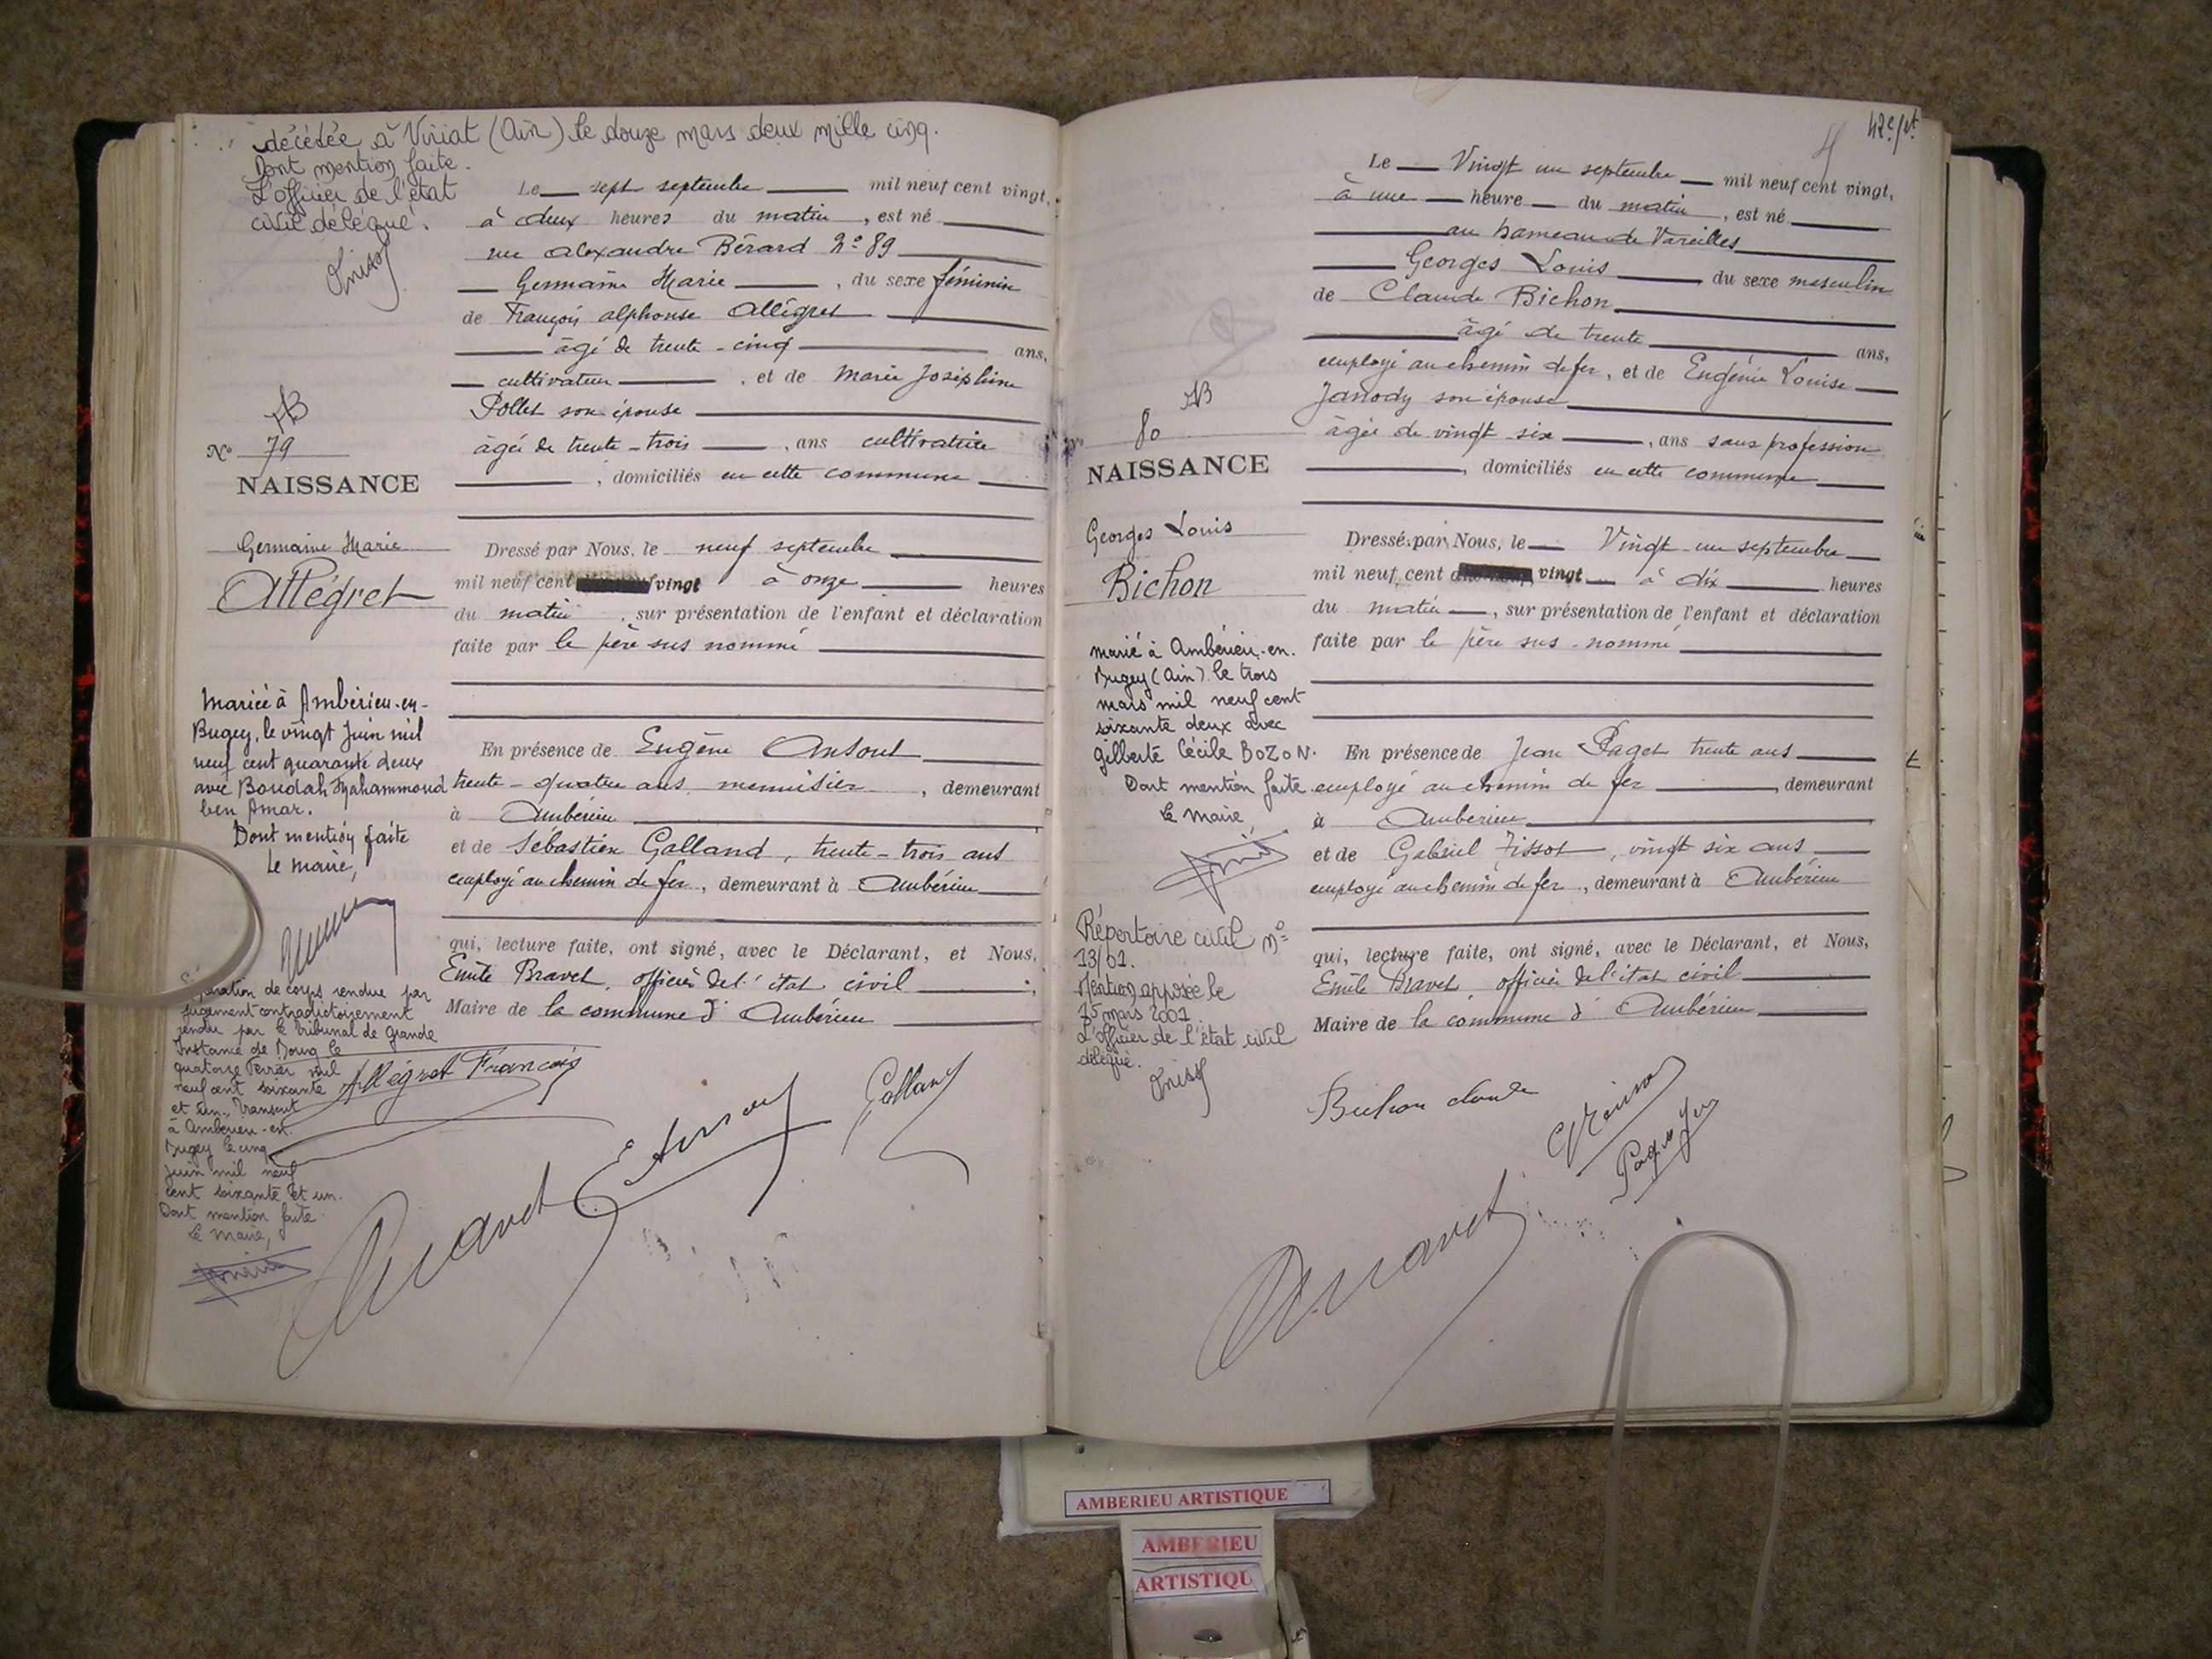 décédée à Viriat (Ain) le douze mars deux mille cinq.
Dont mention faite.
L'officier de l'état
civil délégué.
Le sept septembre mil neuf cent vingt,
à deux heures du matin, est né
rue Alexandre Bérard No 89
Germaine Marie, du sexe féminin
de François Alphonse Allégret
âgé de trente-cinq ans,
cultivateur, et de Marie Joséphine
Pollet son épouse
âgée de trente-trois, ans cultivatrice
, domiciliés en cette commune
No 79
NAISSANCE
Germaine Marie
Allégret
Dressé par Nous, le neuf septembre
mil neuf cent vingt à onze heures
du matin, sur présentation de l'enfant et déclaration
faite par le père sus nommé
Mariée à Ambérieu-en-
Bugey, le vingt Juin mil
neuf cent quarante deux
avec Boudah Mahammoud
ben Amar.
Dont mention faite
Le Maire,
En présence de Eugène
trente-quatre ans menuisier, demeurant
à Ambérieu
et de Sébastien Galland, trente-trois ans
employé au chemin de fer, demeurant à Ambérieu
qui, lecture faite, ont signé, avec le Déclarant, et Nous,
Emile Bravet, officier de l'état civil
Maire de la commune d'Ambérieu
Séparation de corps rendue par
jugement contradictoirement
rendu par le Tribunal de Grande
Instance de Bourg le
quatorze Février mil
neuf cent soixante
et un. Transcrit
à Ambérieu-en-
Bugey le cinq
Juin mil neuf
cent soixante et un.
Dont mention faite
Le Maire,
Allégret François
Galland
Bravet
42e f't
Le Vingt un septembre mil neuf cent vingt,
à une heure du matin, est né
au hameau de Vareilles
Georges Louis du sexe masculin
de Claude Bichon
âgé de trente ans,
employé au chemin de fer, et de Eugénie Louise
Janody son épouse
âgée de vingt six, ans sans profession
, domiciliés en cette commune
No 80
NAISSANCE
Georges Louis
Bichon
Dressé par Nous, le Vingt un septembre
mil neuf cent vingt à dix heures
du matin, sur présentation de l'enfant et déclaration
faite par le père sus-nommé
marié à Ambérieu-en-
Bugey (Ain) le trois
mars mil neuf cent
soixante deux avec
Gilberte Cécile BOZON.
Dont mention faite
Le Maire
En présence de Jean Paget trente ans
employé au chemin de fer, demeurant
à Ambérieu
et de Gabriel Tissot, vingt six ans
employé au chemin de fer, demeurant à Ambérieu
Répertoire civil No
13/01.
Mention apposée le
15 mars 2001
L'officier de l'état civil
délégué.
qui, lecture faite, ont signé, avec le Déclarant, et Nous,
Emile Bravet officier de l'état civil
Maire de la commune d'Ambérieu
Bichon Claude
Bravet
AMBERIEU ARTISTIQUE
AMBERIEU
ARTISTIQU